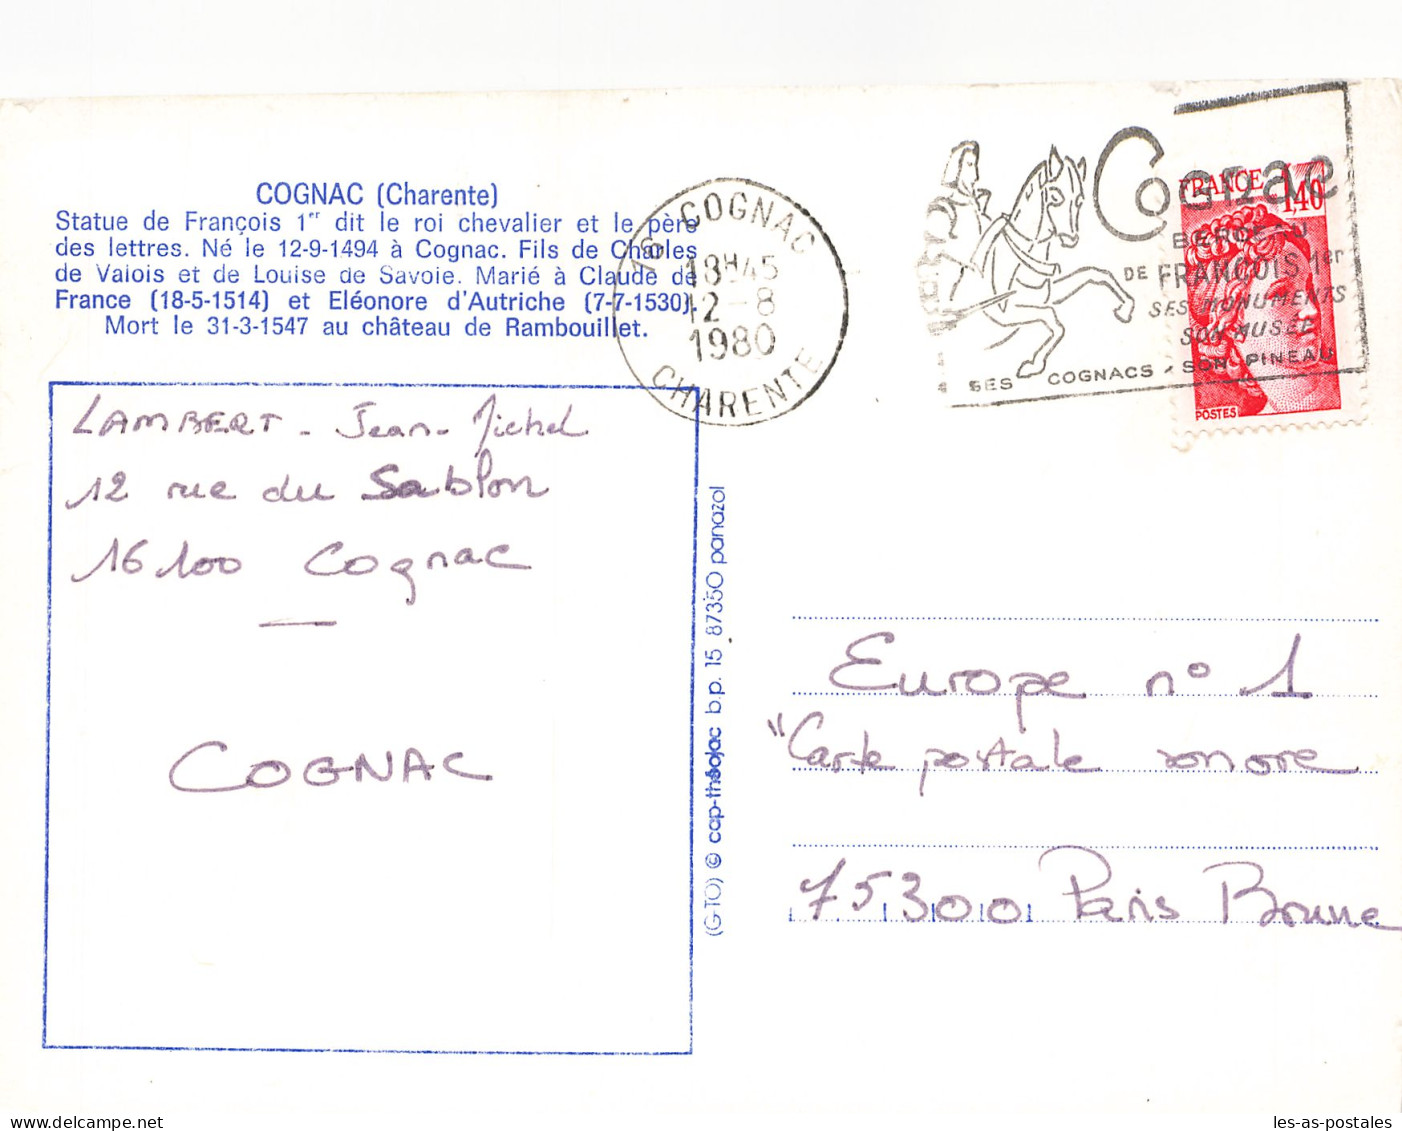 COGNAC (Charente)
Statue de François 1er dit le roi chevalier et le père
des lettres. Né le 12-9-1494 à Cognac. Fils de Charles
de Valois et de Louise de Savoie. Marié à Claude de
France (18-5-1514) et Eléonore d'Autriche (7-7-1530).
Mort le 31-3-1547 au château de Rambouillet.
16 COGNAC
18H45
12-8
1980
CHARENTE
Cognac
BERCEAU
DE FRANÇOIS 1er
SES MONUMENTS
SON MUSÉE
SES COGNACS - SON PINEAU
FRANCE 1,40
POSTES
LAMBERT - Jean-Michel
12 rue du Sablon
16100 Cognac
COGNAC
(GTO) © cap-théojac b.p. 15 87350 panazol
Europe n° 1
"Carte postale sonore
75300 Paris Brune
les-as-postales
delcampe.net